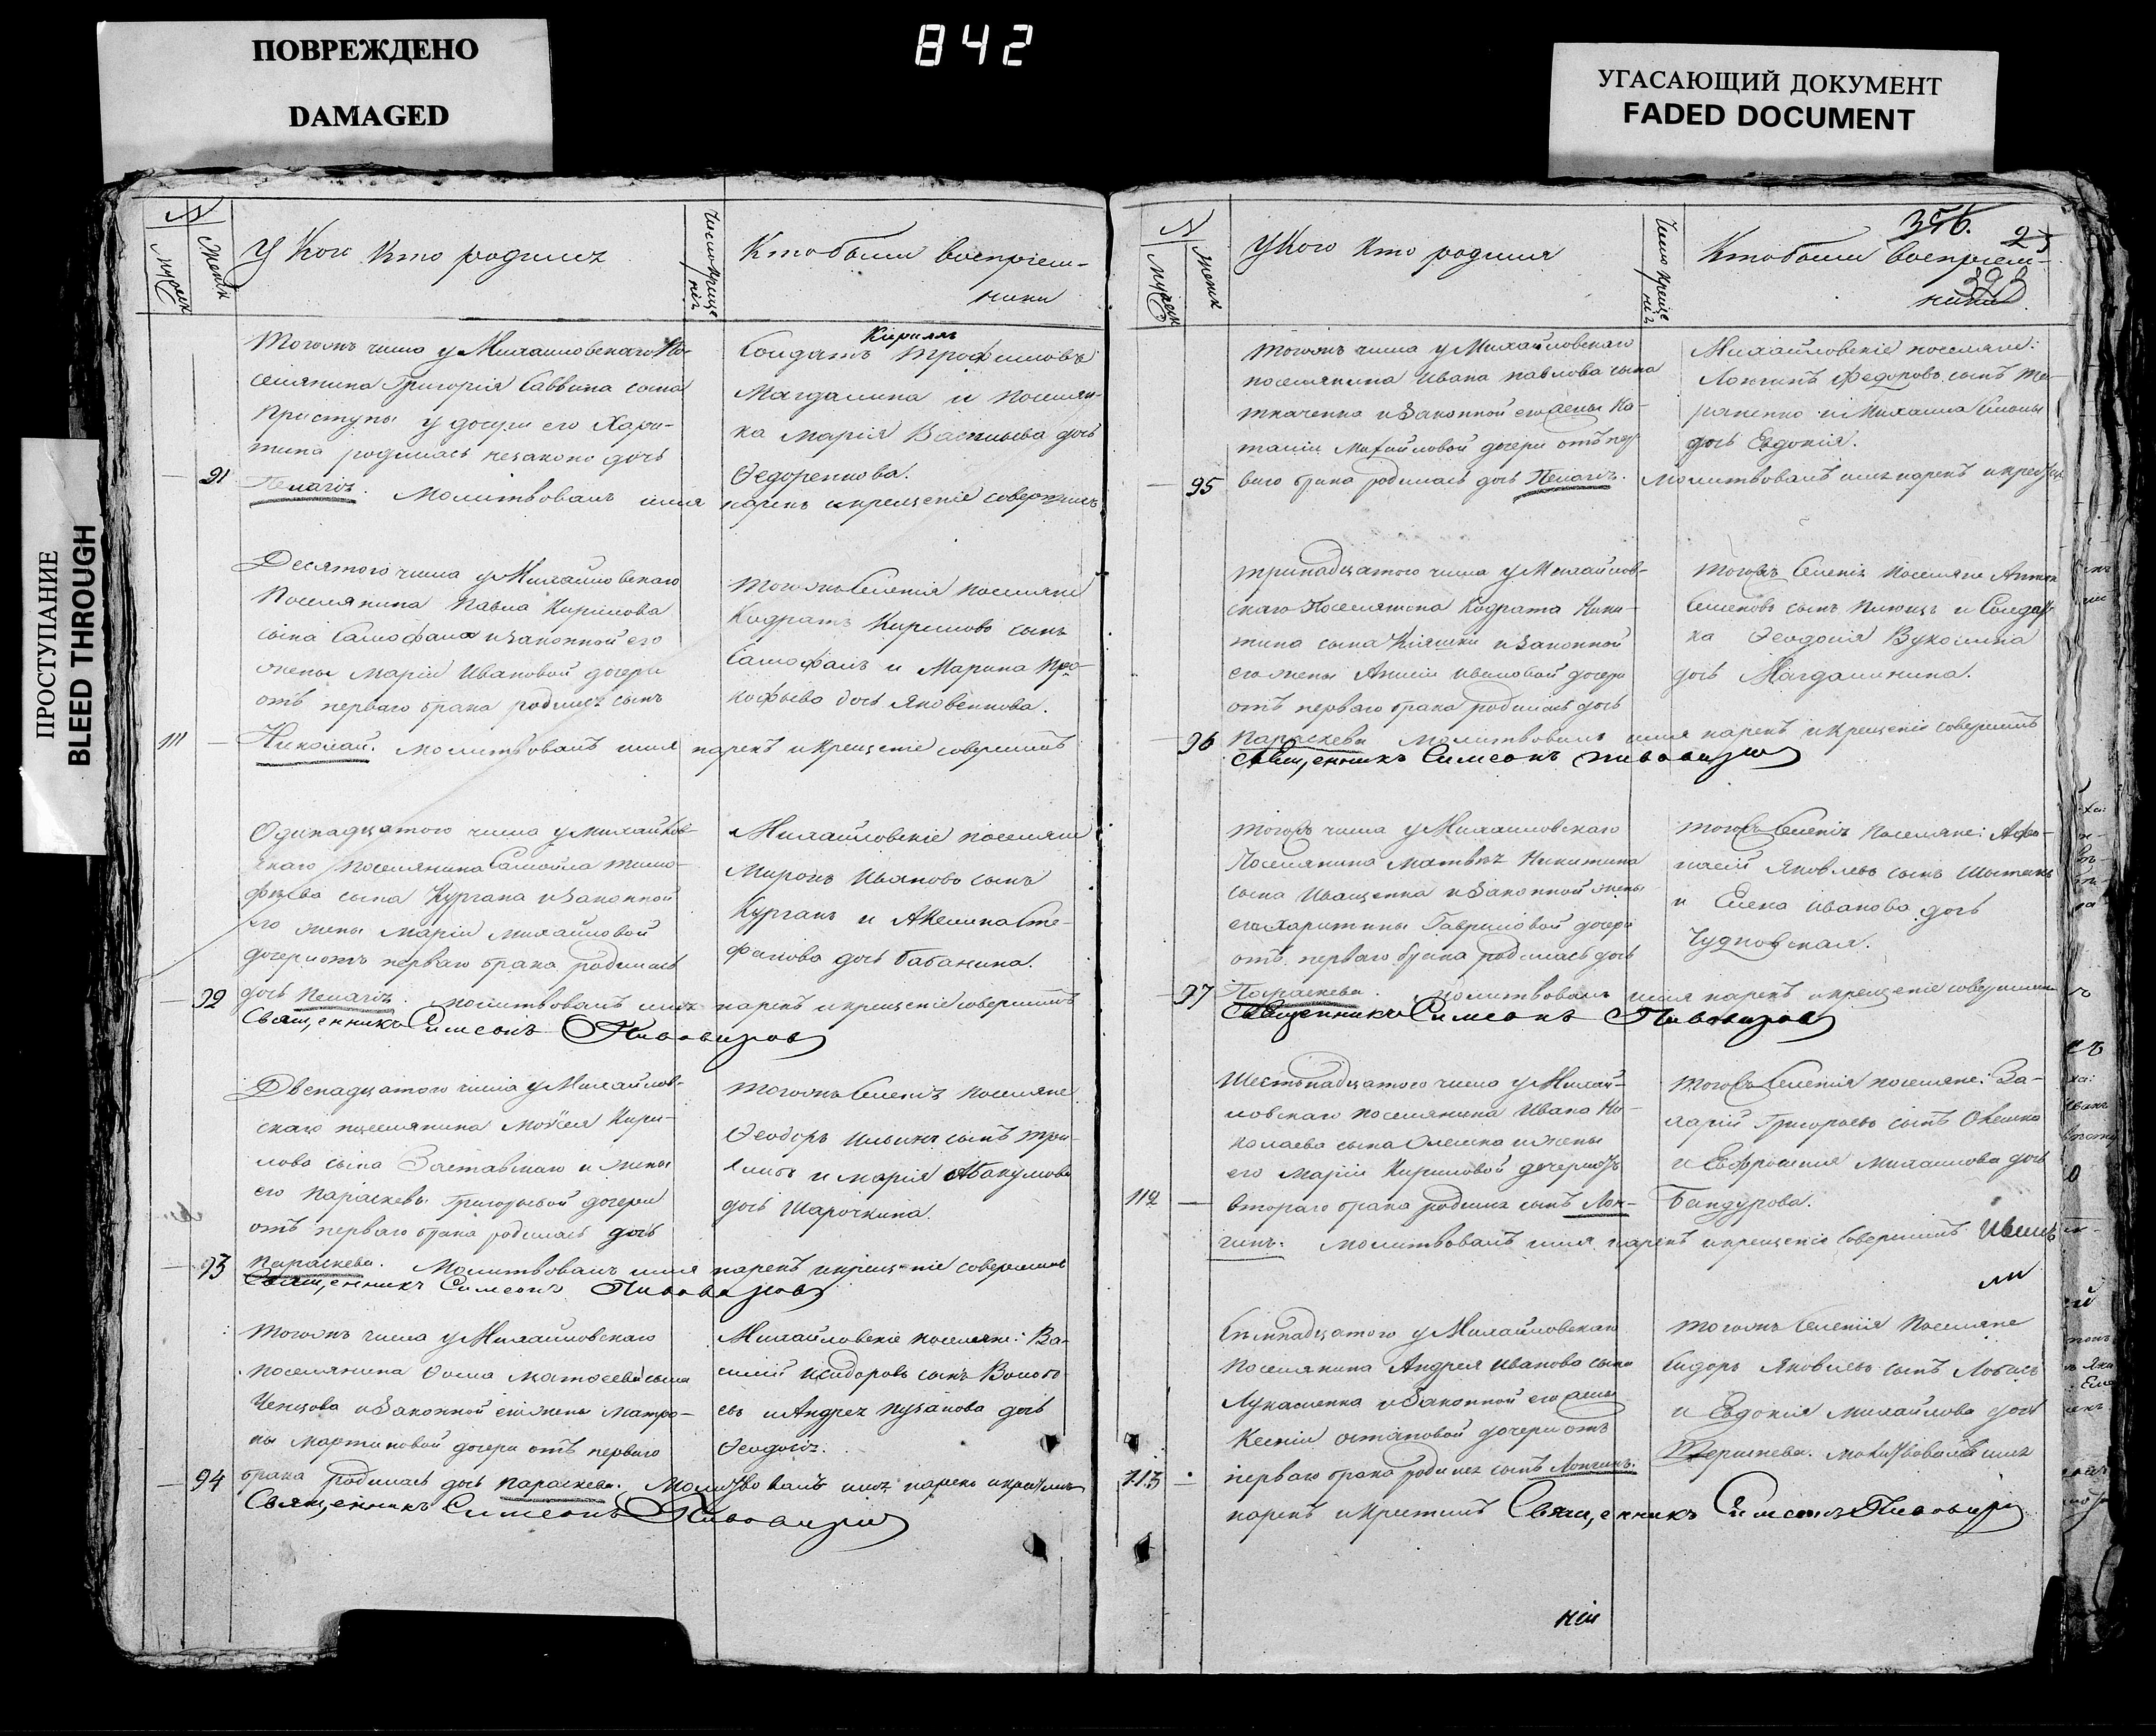 ПОВРЕЖДЕНО
DAMAGED
842
УГАСАЮЩИЙ ДОКУМЕНТ
FADED DOCUMENT
ПРОСТУПАНИЕ
BLEED THROUGH
№
Мужеск
Женск
У Кого Кто родился
Число Креще-
нія
Кто были воспріем-
ники
Тогожъ числа у Михаиловскаго По-
селянина Григорія Саввина сына
Приступы у дочери его Хари-
тина родилась незаконо дочь
91
Пелагія. Молитвовалъ имя нарекъ и крещеніе совершилъ
Кирилъ
Солдатъ Трофимовъ
Магдалина и поселян-
ка Марія Васильева дочь
Ѳедоренкова.
Десятого числа у Михаиловскаго
Поселянина Павла Кирилова
сына Самофала и законной его
жены Маріи Ивановой дочери
отъ перваго брака родился сынъ
111
Николай. молитвовалъ имя нарекъ и крещеніе совершилъ
Тогожъ Селенія поселяне
Кодратъ Кирилово сынъ
Самофалъ и Марина Про-
кофьева дочь Яковенкова.
Одинадцатого числа у Михайлов-
скаго поселянина Самойла Тимо-
фѣева сына Кургана и законной
его жены Маріи Михайловой
дочери отъ перваго брака родилась
92
дочь Пелагія. молитвовалъ имя нарекъ и крещеніе совершилъ
Священникъ Симеонъ Пивоваровъ
Михайловскіе поселяне
Миронъ Иваново сынъ
Курганъ и Акелина Сте-
фанова дочь Бабанина.
Двенадцатого числа у Михайлов-
скаго поселянина Моѵсея Кири-
лова сына Заставнаго и жены
его Параскевы Григорьевой дочери
отъ перваго брака родилась дочь
93
Параскева. Молитвовалъ имя нарекъ и крещеніе совершилъ
Священникъ Симеонъ Пивоваровъ
Тогожъ Селенія поселяне
Ѳеодоръ Ильинъ сынъ
и Марія Абакумова
дочь Шарочкина.
Тогожъ числа у Михайловскаго
поселянина Ѳома Матѳеева сына
Ченцова и законной его жены Матро-
ны Мартиновой дочери отъ перваго
94
брака родилась дочь Параскева. Молитвовалъ имя нарекъ и крестилъ
Священникъ Симеонъ Пивоваровъ
Михайловскіе поселяне: Ва-
силій Исидоровъ сынъ
и Андрея Пузанова дочь
Ѳеодосія.
№
Мужеск
Женск
У Кого Кто родился
Число Креще
нія
Кто были воспріем-
ники
356.
23
393
Тогожъ числа у Михайловскаго
поселянина Ивана Павлова сына
Ткаченка и законной его жены На-
таліи Михайловой дочери отъ пер-
95
ваго брака родилась дочь Пелагія. молитвовалъ имя нарекъ и крестилъ
Михайловскіе поселяне:
Лонгинъ Федоровъ сынъ
и Михаила
дочь Евдокія.
Тринадцатого числа у Михайлов-
скаго Поселянина Кодрата Ники-
тина сына Кияшки и законной
его жены Ивановой дочери
отъ перваго брака родилась дочь
96
Параскева молитвовалъ имя нарекъ и крещеніе совершилъ
Священникъ Симеонъ Пивоваровъ
Тогожъ Селенія поселяне Антон
Семеновъ сынъ и Солдат-
ка Ѳеодосія Вуколина
дочь Магдалинина.
Тогожъ числа у Михаиловскаго
Поселянина Матвея Никитина
сына Иващенка и законной жены
его Харитины Гавриловой дочери
отъ перваго брака родилась дочь
97
Параскева. молитвовалъ имя нарекъ и крещеніе совершилъ
Священникъ Симеонъ Пивоваровъ
Тогожъ Селенія поселяне: Афа-
насій Яковлевъ сынъ
и Елена Иванова дочь
Чудновская.
Шестьнадцатого числа у Михай-
ловскаго поселянина Ивана Ни-
колаева сына Олешка и жены
его Маріи Кириловой дочери отъ
112
втораго брака родился сынъ Лон-
гинъ. Молитвовалъ имя нарекъ и крещеніе совершилъ
Тогожъ Селенія поселяне: За-
харій Григорьевъ сынъ Олешко
и Евфросинія Михаилова дочь
Бандурова.
Семнадцатого у Михаиловскаго
Поселянина Андрея Иванова сына
Лукашенка и законной его жены
Ксеніи Остаповой дочери отъ
113
перваго брака родился сынъ Лонгинъ.
нарекъ и крестилъ Священникъ Симеонъ Пивоваровъ
Тогожъ Селенія Поселяне
Сидоръ Яковлевъ сынъ Лобасъ
и Евдокія Михайлова дочь
молитвовалъ имя
ніи